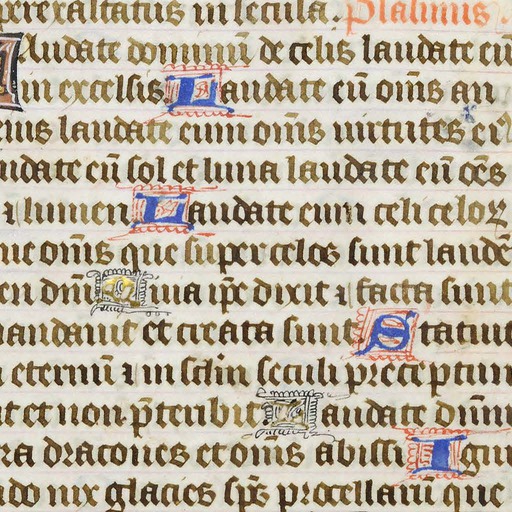 perexaltatus in secula. Psalmus.
Laudate dominũ de celis laudate eũ
in excelsis Laudate eũ oms̃ an
eius laudate eum oms̃ uirtutes eiꝰ
udate eũ sol et luna laudate eũ oẽs
⁊ lumen Laudate eum celi celoꝝ
ue oms̃ que super celos sunt laudẽ
en dñi Quia ip̃e dixit ⁊ facta sunt
andauit et creata sunt Statuit
eternũ ⁊ in sc̃lm̃ seculi preceptum
t et non p̃teribit Laudate dñm
ra dracones et oms̃ abissi Igni
do nix glacies sp̃s procellarũ que